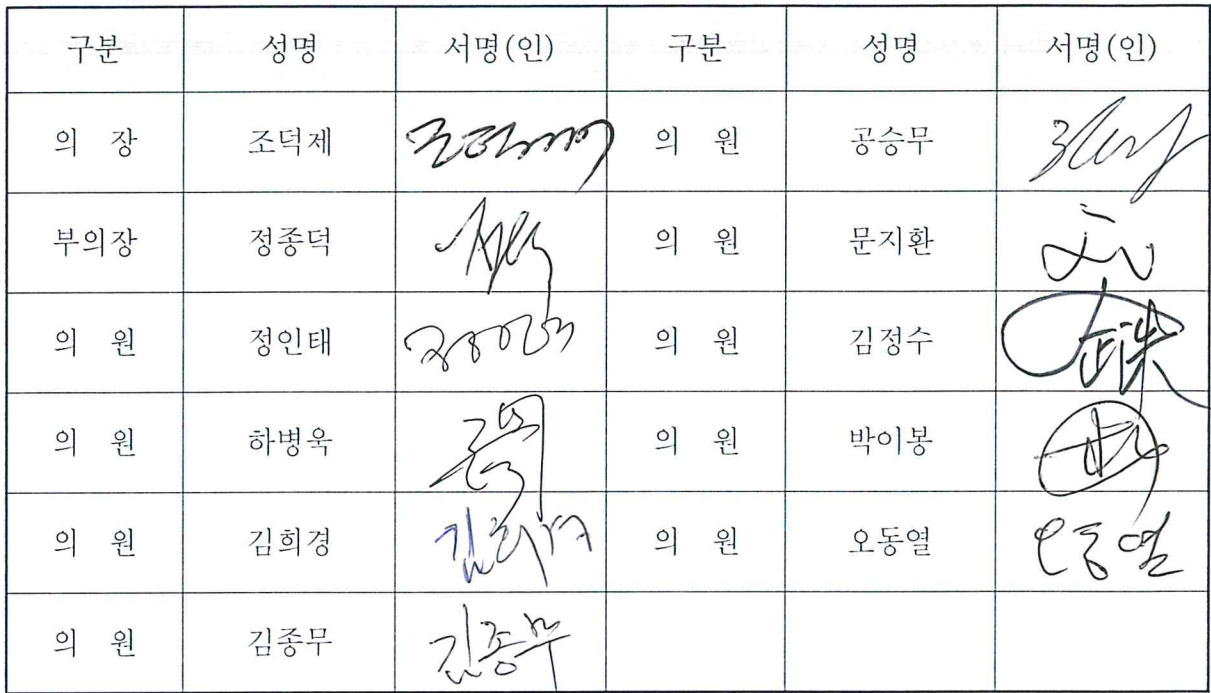 구분 성명 서명(인) 구분 성명 서명(인)
의 장 조덕제 의 원 공승무
부의장 정종덕 의 원 문지환
의 원 정인태 의 원 김정수
의 원 하병욱 의 원 박이봉
의 원 김희경 김희경 의 원 오동열 오동열
의 원 김종무 김종무